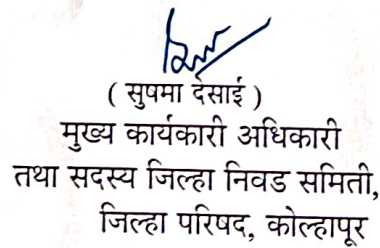 ( सुषमा देसाई )
मुख्य कार्यकारी अधिकारी
तथा सदस्य जिल्हा निवड समिती,
जिल्हा परिषद, कोल्हापूर